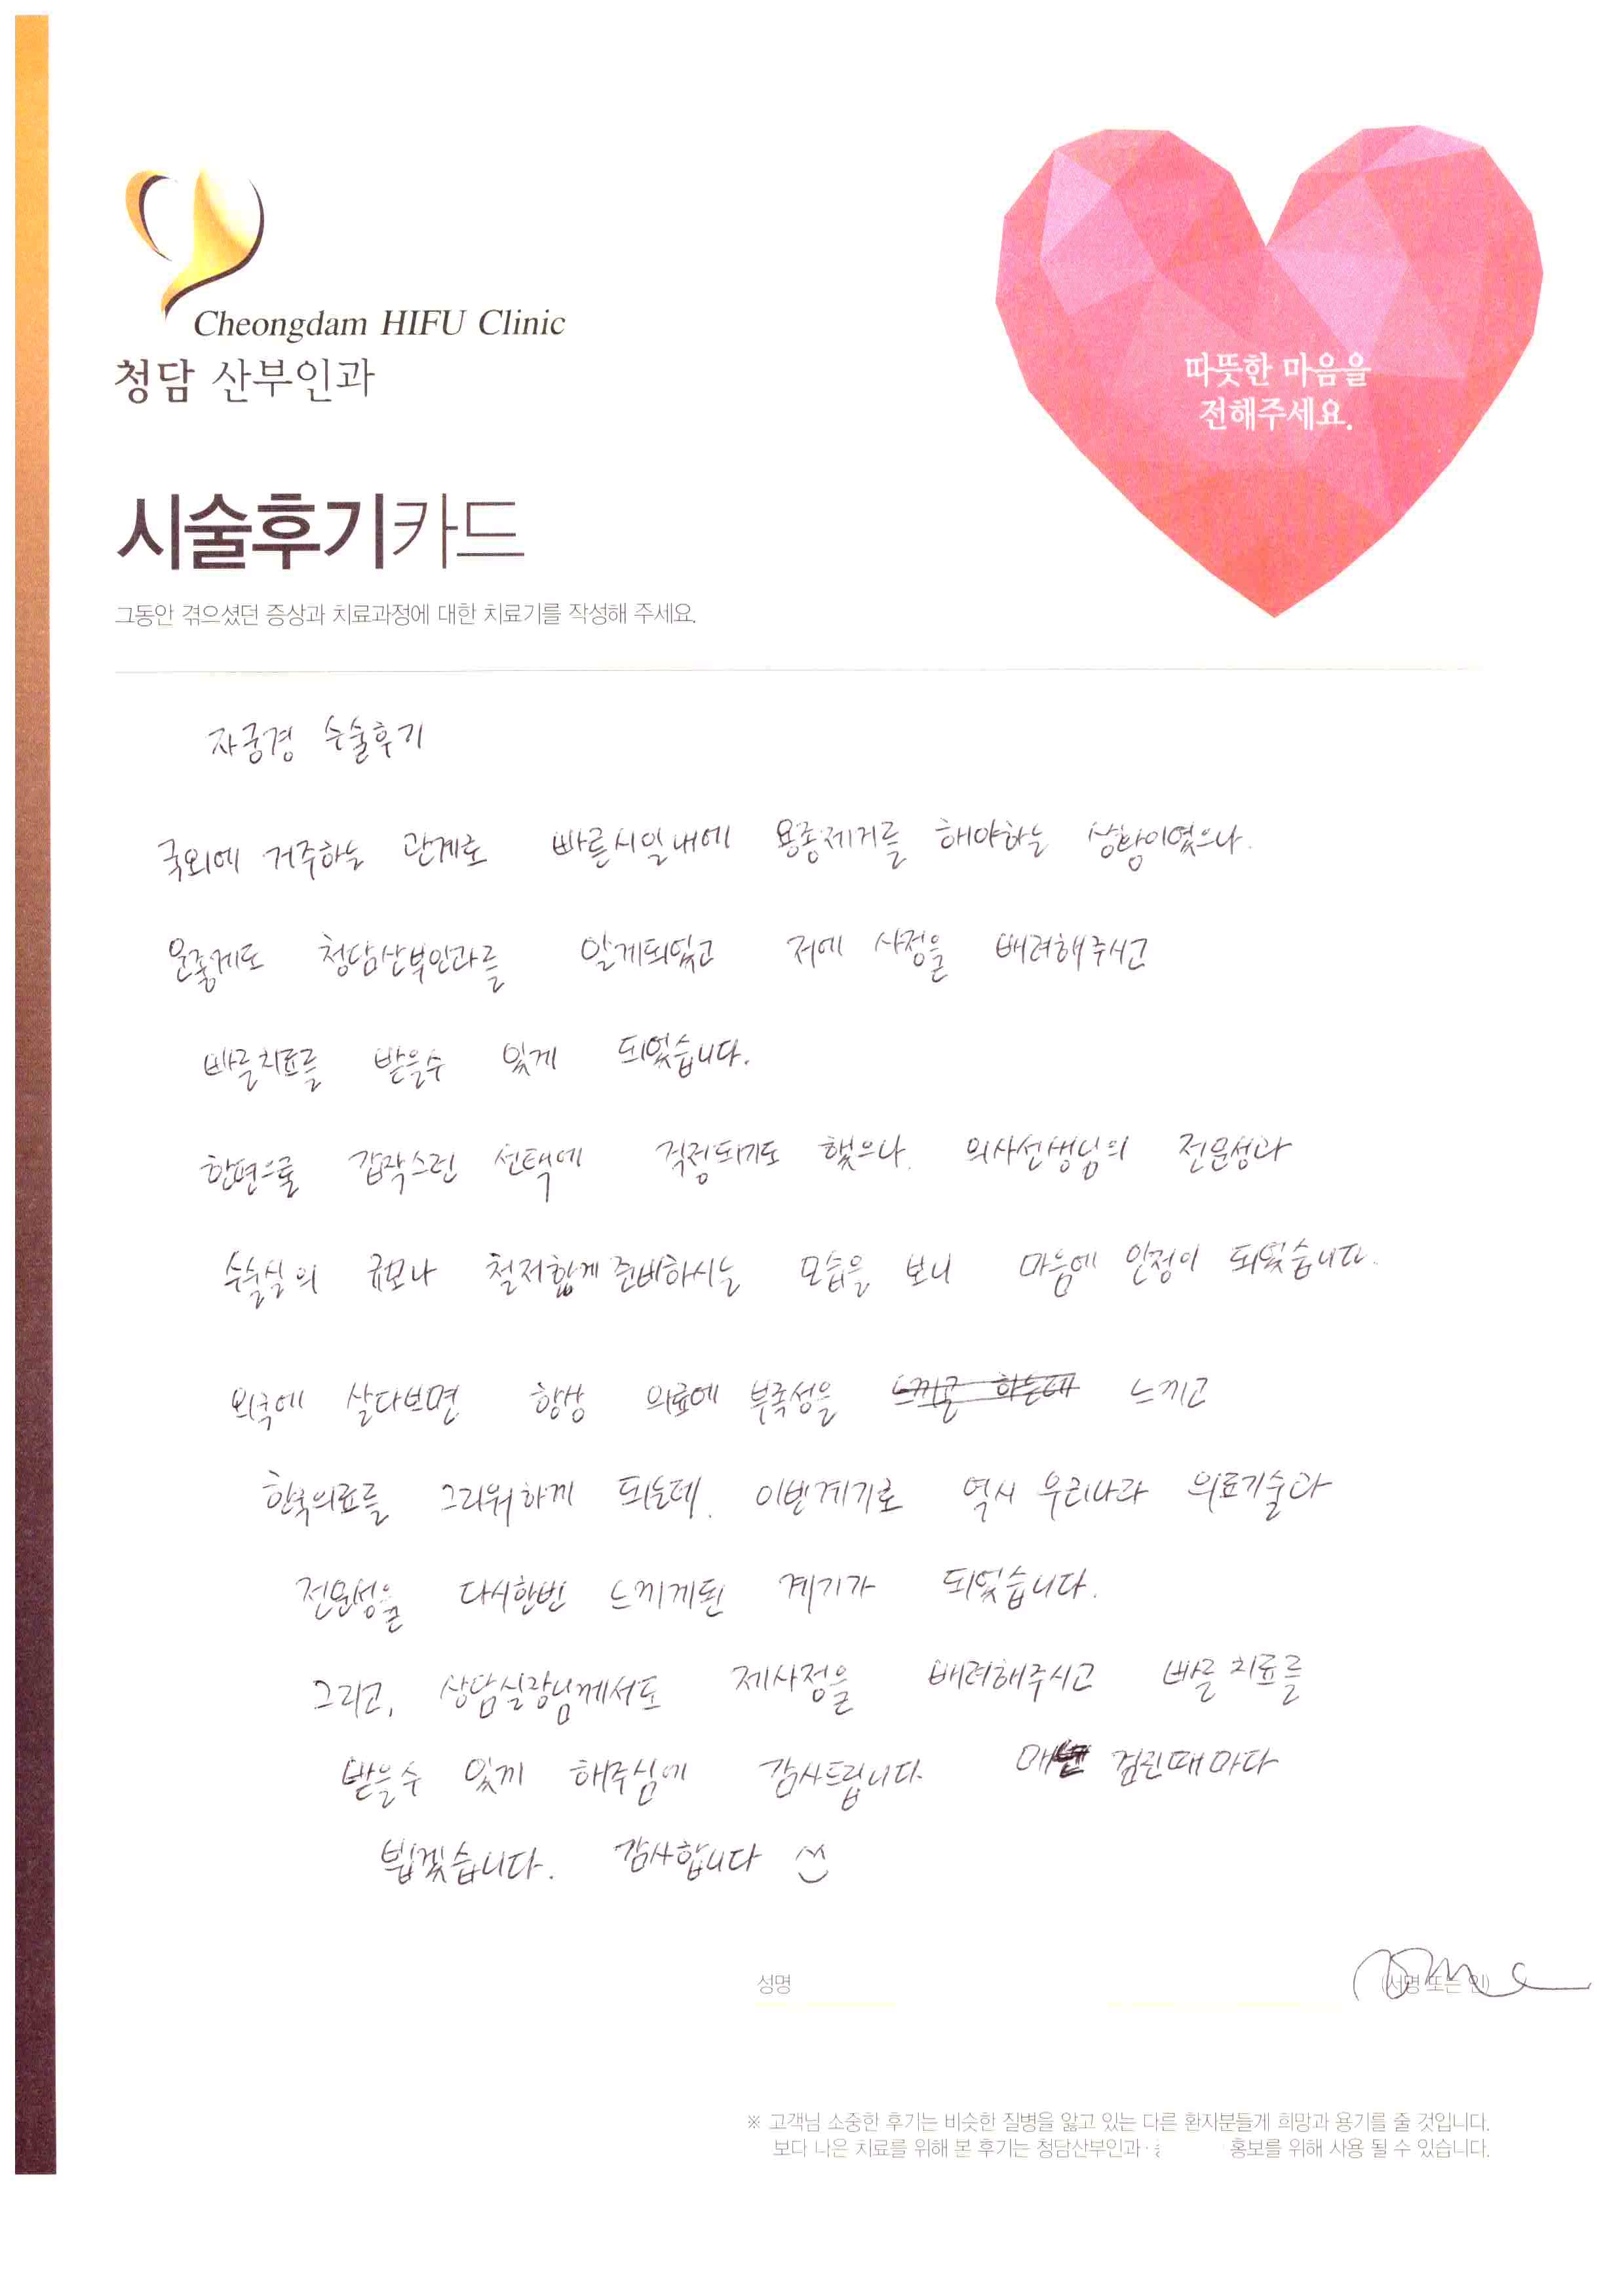 Cheongdam HIFU Clinic
청담 산부인과
따뜻한 마음을
전해주세요.
시술후기카드
그동안 겪으셨던 증상과 치료과정에 대한 치료기를 작성해 주세요.
자궁경 수술후기
국외에 거주하는 관계로 빠른시일내에 용종제거를 해야하는 상황이였으나.
운좋게도 청담산부인과를 알게되었고 저에 사정을 배려해주시고
빠를치료를 받을수 있게 되었습니다.
한편으롤 갑작스런 선택에 걱정되기도 했으나. 의사선생님의 전문성과
수술실의 규모나 철저함게 준비하시는 모습을 보니 마음에 안정이 되었습니다.
외국에 살다보면 항상 의료에 부족성을 느끼고
한국의료를 그리워하게 되는데. 이번계기로 역시 우리나라 의료기술과
전문성을 다시한번 느끼게된 계기가 되었습니다.
그리고, 상담실장님께서도 제사정을 배려해주시고 빠를 치료를
받을수 있게 해주심에 감사드립니다. 매 검진때마다
뵙겠습니다. 감사합니다 ^^
성명
(서명 또는 인)
※ 고객님 소중한 후기는 비슷한 질병을 앓고 있는 다른 환자분들게 희망과 용기를 줄 것입니다.
보다 나은 치료를 위해 본 후기는 청담산부인과· 홍보를 위해 사용 될 수 있습니다.